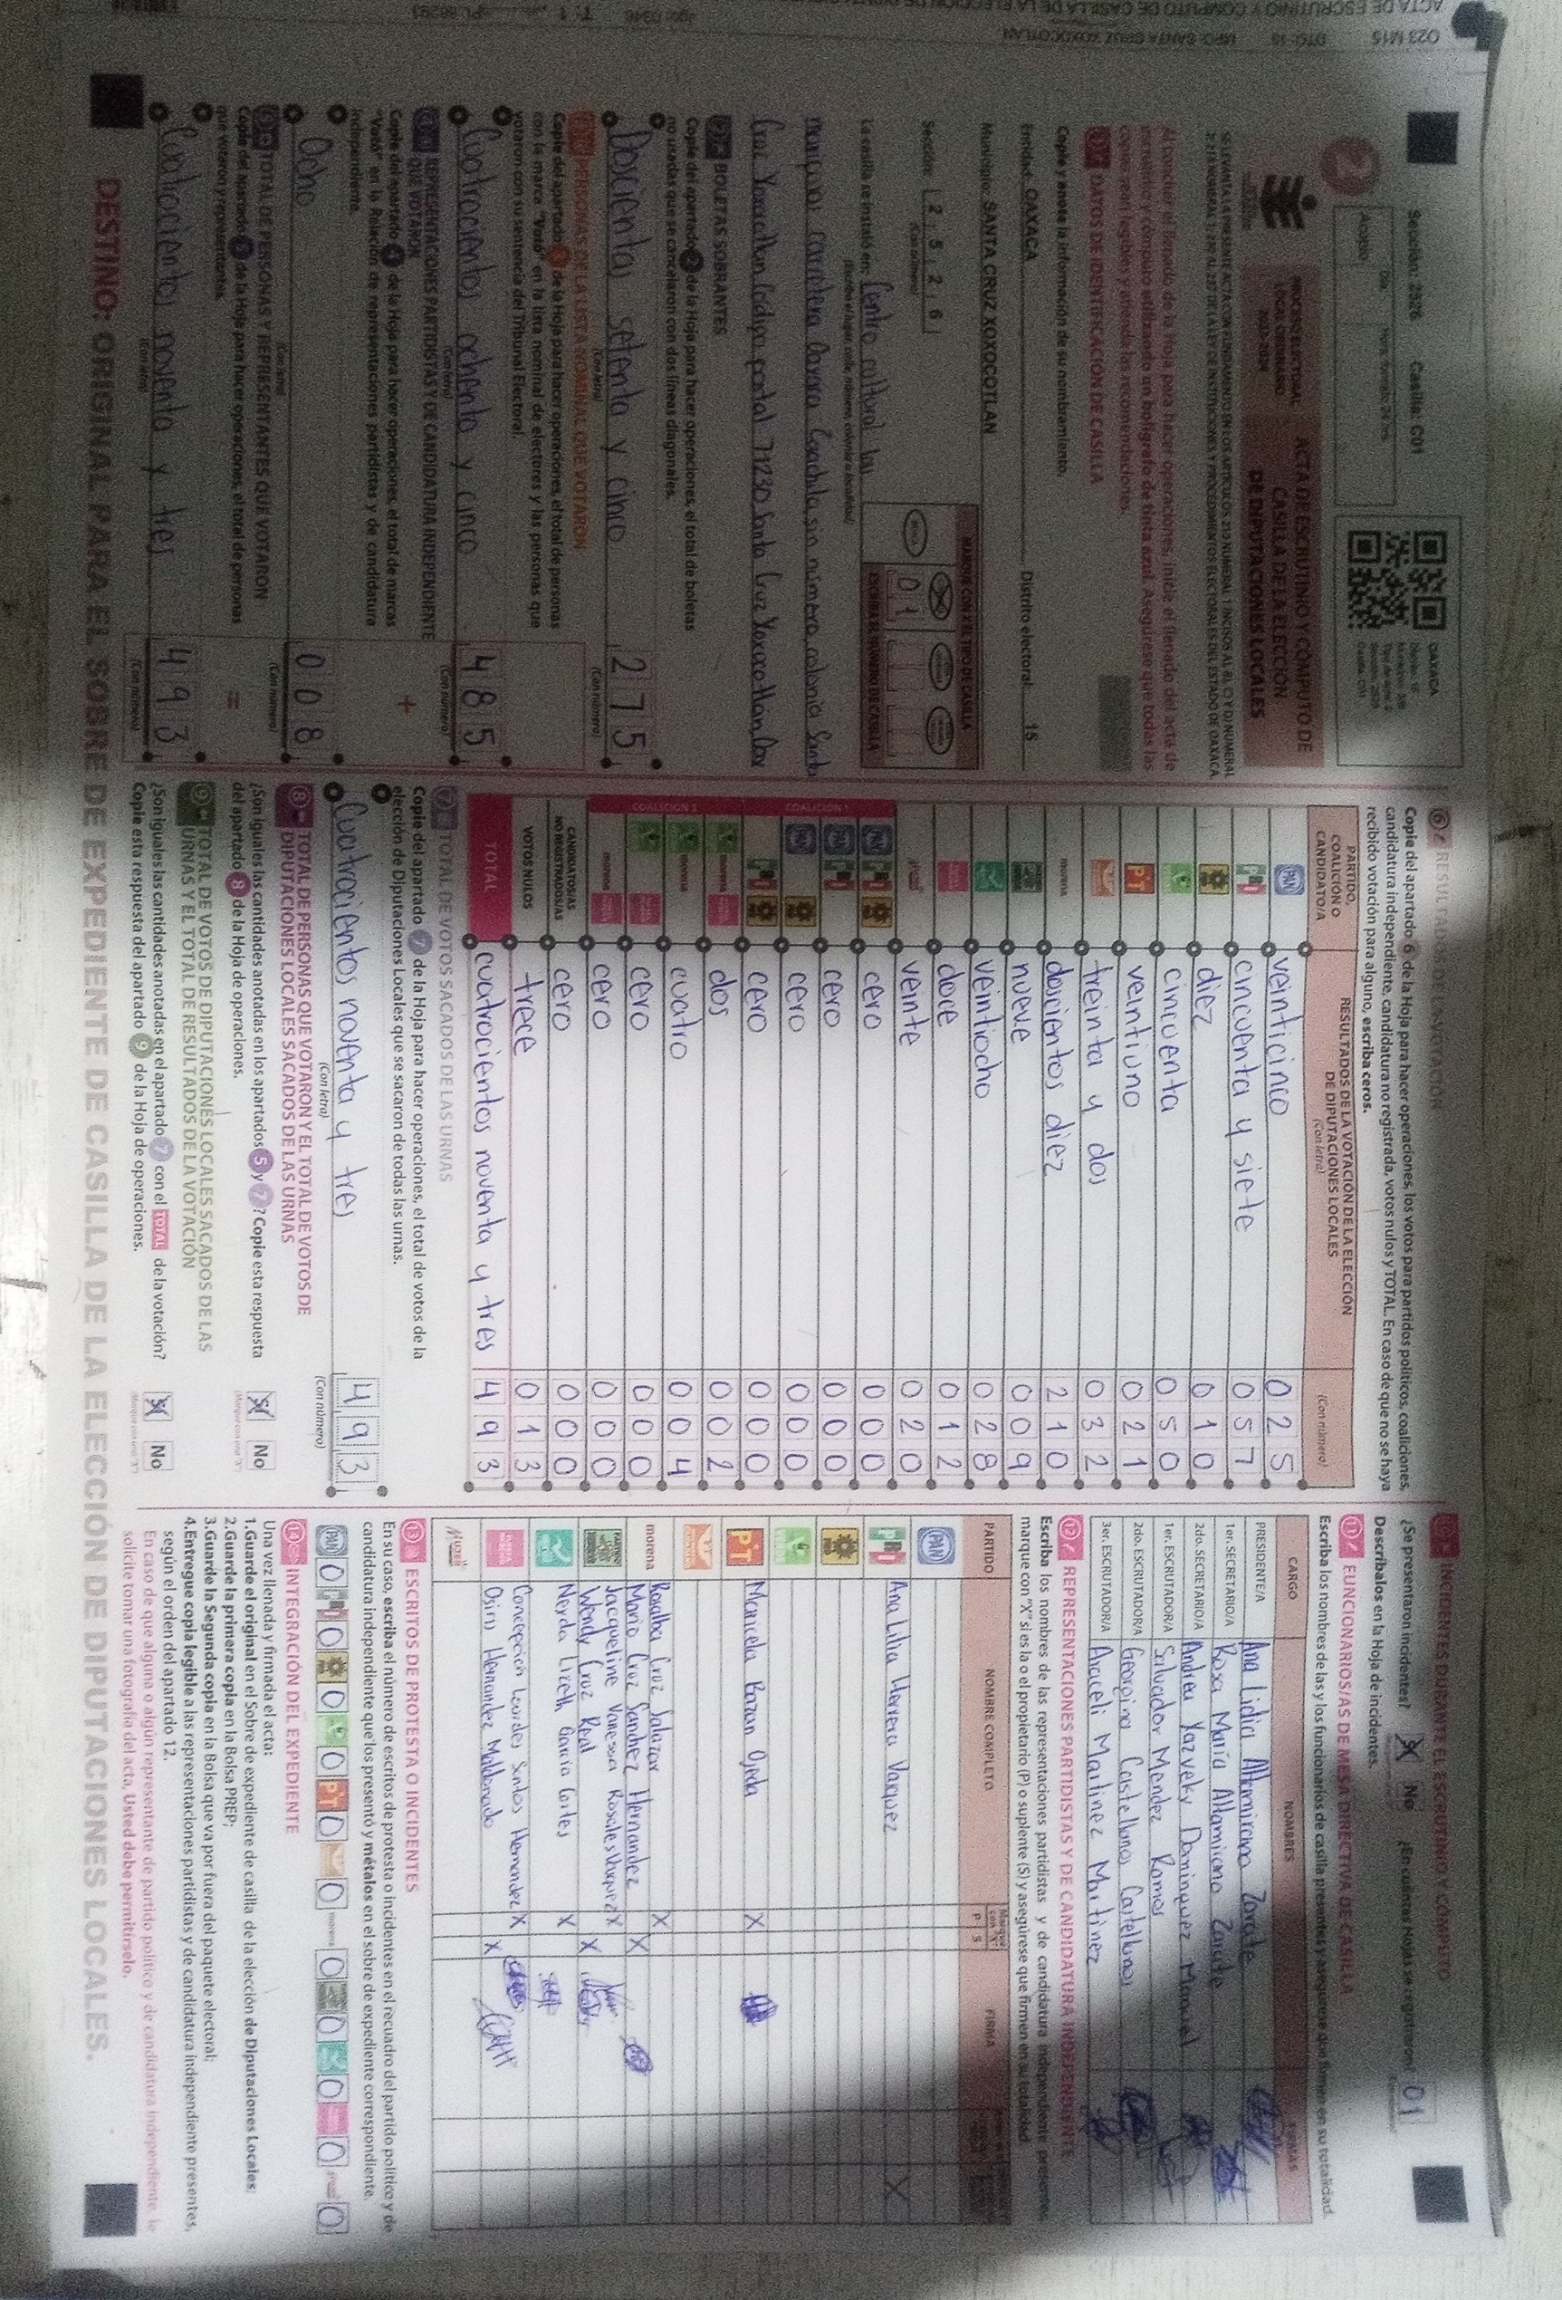 O23 M15 DTO: 15 MPO: SANTA CRUZ XOXOCOTLAN
Sección: 2526 Casilla: C01
OAXACA
2
PROCESO ELECTORAL
LOCAL ORDINARIO
2023-2024
ACTA DE ESCRUTINIO Y CÓMPUTO DE
CASILLA DE LA ELECCIÓN
DE DIPUTACIONES LOCALES
Al concluir el llenado de la Hoja para hacer operaciones, inicie el llenado del acta de
escrutinio y cómputo utilizando un bolígrafo de tinta azul. Asegúrese que todas las
copias sean legibles y atienda las recomendaciones.
DATOS DE IDENTIFICACIÓN DE CASILLA
Copie y anote la información de su nombramiento.
Entidad: OAXACA Distrito electoral: 15
Municipio: SANTA CRUZ XOXOCOTLAN
Sección: 2 5 2 6
(Con número)
MARQUE CON X EL TIPO DE CASILLA
ESCRIBA EL NÚMERO DE CASILLA
0 1
La casilla se instaló en: Centro cultural las
(Escriba el lugar, calle, número, colonia o localidad)
carretera Oaxaca Coachila sin número colonia Santa
Cruz Xoxocotlan Codigo postal 71230 Santa Cruz Xoxocotlán Oax
BOLETAS SOBRANTES
Copie del apartado 2 de la Hoja para hacer operaciones, el total de boletas
no usadas que se cancelaron con dos líneas diagonales.
Doscientas setenta y cinco 2 7 5
(Con letra) (Con número)
PERSONAS DE LA LISTA NOMINAL QUE VOTARON
Copie del apartado 3 de la Hoja para hacer operaciones, el total de personas
con la marca "Votó" en la lista nominal de electores y las personas que
votaron con su sentencia del Tribunal Electoral.
Cuatrocientos ochenta y cinco 4 8 5
(Con letra) (Con número)
REPRESENTACIONES PARTIDISTAS Y DE CANDIDATURA INDEPENDIENTE
QUE VOTARON
Copie del apartado 4 de la Hoja para hacer operaciones, el total de marcas
"Votó" en la Relación de representaciones partidistas y de candidatura
independiente.
+
Ocho 0 0 8
(Con letra) (Con número)
TOTAL DE PERSONAS Y REPRESENTANTES QUE VOTARON
Copie del apartado 5 de la Hoja para hacer operaciones, el total de personas
que votaron y representantes.
=
Cuatrocientos noventa y tres 4 9 3
(Con letra) (Con número)
6 RESULTADOS DE LA VOTACIÓN
Copie del apartado 6 de la Hoja para hacer operaciones, los votos para partidos políticos, coaliciones,
candidatura independiente, candidatura no registrada, votos nulos y TOTAL. En caso de que no se haya
recibido votación para alguno, escriba ceros.
PARTIDO,
COALICIÓN O
CANDIDATO/A
RESULTADOS DE LA VOTACIÓN DE LA ELECCIÓN
DE DIPUTACIONES LOCALES
(Con letra) (Con número)
PAN veinticinco 0 2 5
PRI cincuenta y siete 0 5 7
PRD diez 0 1 0
cincuenta 0 5 0
PT veintiuno 0 2 1
treinta y dos 0 3 2
morena doscientos diez 2 1 0
nueve 0 0 9
veintiocho 0 2 8
doce 0 1 2
veinte 0 2 0
COALICIÓN 1
PAN PRI PRD cero 0 0 0
PAN PRI cero 0 0 0
PAN PRD cero 0 0 0
PRI PRD cero 0 0 0
COALICIÓN 2
morena dos 0 0 2
morena cuatro 0 0 4
cero 0 0 0
morena cero 0 0 0
CANDIDATOS/AS
NO REGISTRADOS/AS cero 0 0 0
VOTOS NULOS trece 0 1 3
TOTAL cuatrocientos noventa y tres 4 9 3
7 TOTAL DE VOTOS SACADOS DE LAS URNAS
Copie del apartado 7 de la Hoja para hacer operaciones, el total de votos de la
elección de Diputaciones Locales que se sacaron de todas las urnas.
Cuatrocientos noventa y tres 4 9 3
(Con letra) (Con número)
8 TOTAL DE PERSONAS QUE VOTARON Y EL TOTAL DE VOTOS DE
DIPUTACIONES LOCALES SACADOS DE LAS URNAS
¿Son iguales las cantidades anotadas en los apartados 5 y 7? Copie esta respuesta
del apartado 8 de la Hoja de operaciones.
Sí No
9 TOTAL DE VOTOS DE DIPUTACIONES LOCALES SACADOS DE LAS
URNAS Y EL TOTAL DE RESULTADOS DE LA VOTACIÓN
¿Son iguales las cantidades anotadas en el apartado 7 con el TOTAL de la votación?
Copie esta respuesta del apartado 9 de la Hoja de operaciones.
Sí No
INCIDENTES DURANTE EL ESCRUTINIO Y CÓMPUTO
¿Se presentaron incidentes? Sí No ¿En cuántas Hojas se registraron? 01
Descríbalos en la Hoja de incidentes.
11 FUNCIONARIOS/AS DE MESA DIRECTIVA DE CASILLA
Escriba los nombres de las y los funcionarios de casilla presentes y asegúrese que firmen en su totalidad.
CARGO NOMBRES FIRMAS
PRESIDENTE/A Ana Lidia Altamirano Zarate
1er. SECRETARIO/A Rosa María Altamirano Zarate
2do. SECRETARIO/A Andrea Yazvaty Dominguez Manuel
1er. ESCRUTADOR/A Salvador Mendez Ramos
2do. ESCRUTADOR/A Georgina Castellanos Castellanos
3er. ESCRUTADOR/A Araceli Martinez Martinez
12 REPRESENTACIONES PARTIDISTAS Y DE CANDIDATURA INDEPENDIENTE
Escriba los nombres de las representaciones partidistas y de candidatura independiente presentes,
marque con "X" si es la o el propietario (P) o suplente (S) y asegúrese que firmen en su totalidad.
PARTIDO NOMBRE COMPLETO P S FIRMA
PAN
PRI Ana Lilia Herrera Vasquez X
PRD
PT Maricela Bazan Ojeda X
morena Rosalba Cruz Salazar X
Mario Cruz Sanchez Hernandez X
Jacqueline Vanessa Rosales Vasquez X
Wendy Cruz Real X
Neyda Lizeth Garcia Cortes X
Concepcion Lourdes Santos Hernandez X
Osiris Hernandez Maldonado X
13 ESCRITOS DE PROTESTA O INCIDENTES
En su caso, escriba el número de escritos de protesta o incidentes en el recuadro del partido político y de
candidatura independiente que los presentó y métalos en el sobre de expediente correspondiente.
PAN 0 PRI 0 PRD 0 0 PT 0 0 morena 0 0 0 0 0
14 INTEGRACIÓN DEL EXPEDIENTE
Una vez llenada y firmada el acta:
1.Guarde el original en el Sobre de expediente de casilla de la elección de Diputaciones Locales;
2.Guarde la primera copia en la Bolsa PREP;
3.Guarde la Segunda copia en la Bolsa que va por fuera del paquete electoral;
4.Entregue copia legible a las representaciones partidistas y de candidatura independiente presentes,
según el orden del apartado 12.
En caso de que alguna o algún representante de partido político y de candidatura independiente le
solicite tomar una fotografía del acta, Usted debe permitírselo.
DESTINO: ORIGINAL PARA EL SOBRE DE EXPEDIENTE DE CASILLA DE LA ELECCIÓN DE DIPUTACIONES LOCALES.